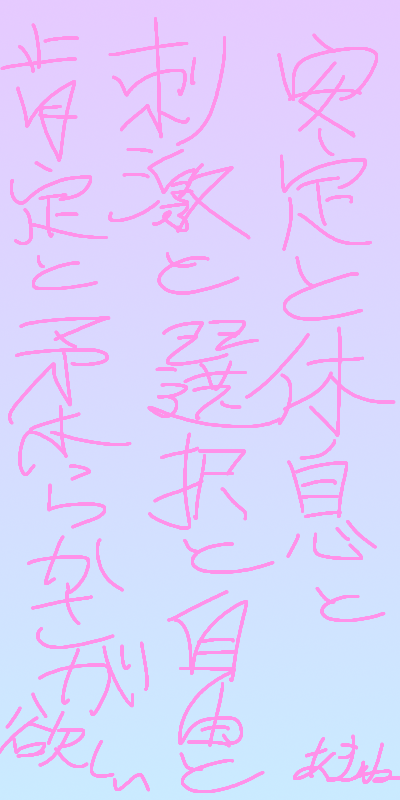 安定と休息と
刺激と選択と自由と
肯定と柔らかさが欲しい
あまね